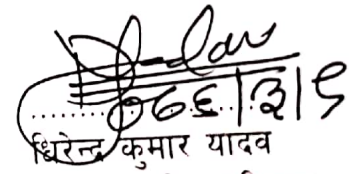 ०७६|३|९
धिरेन्द्र कुमार यादव